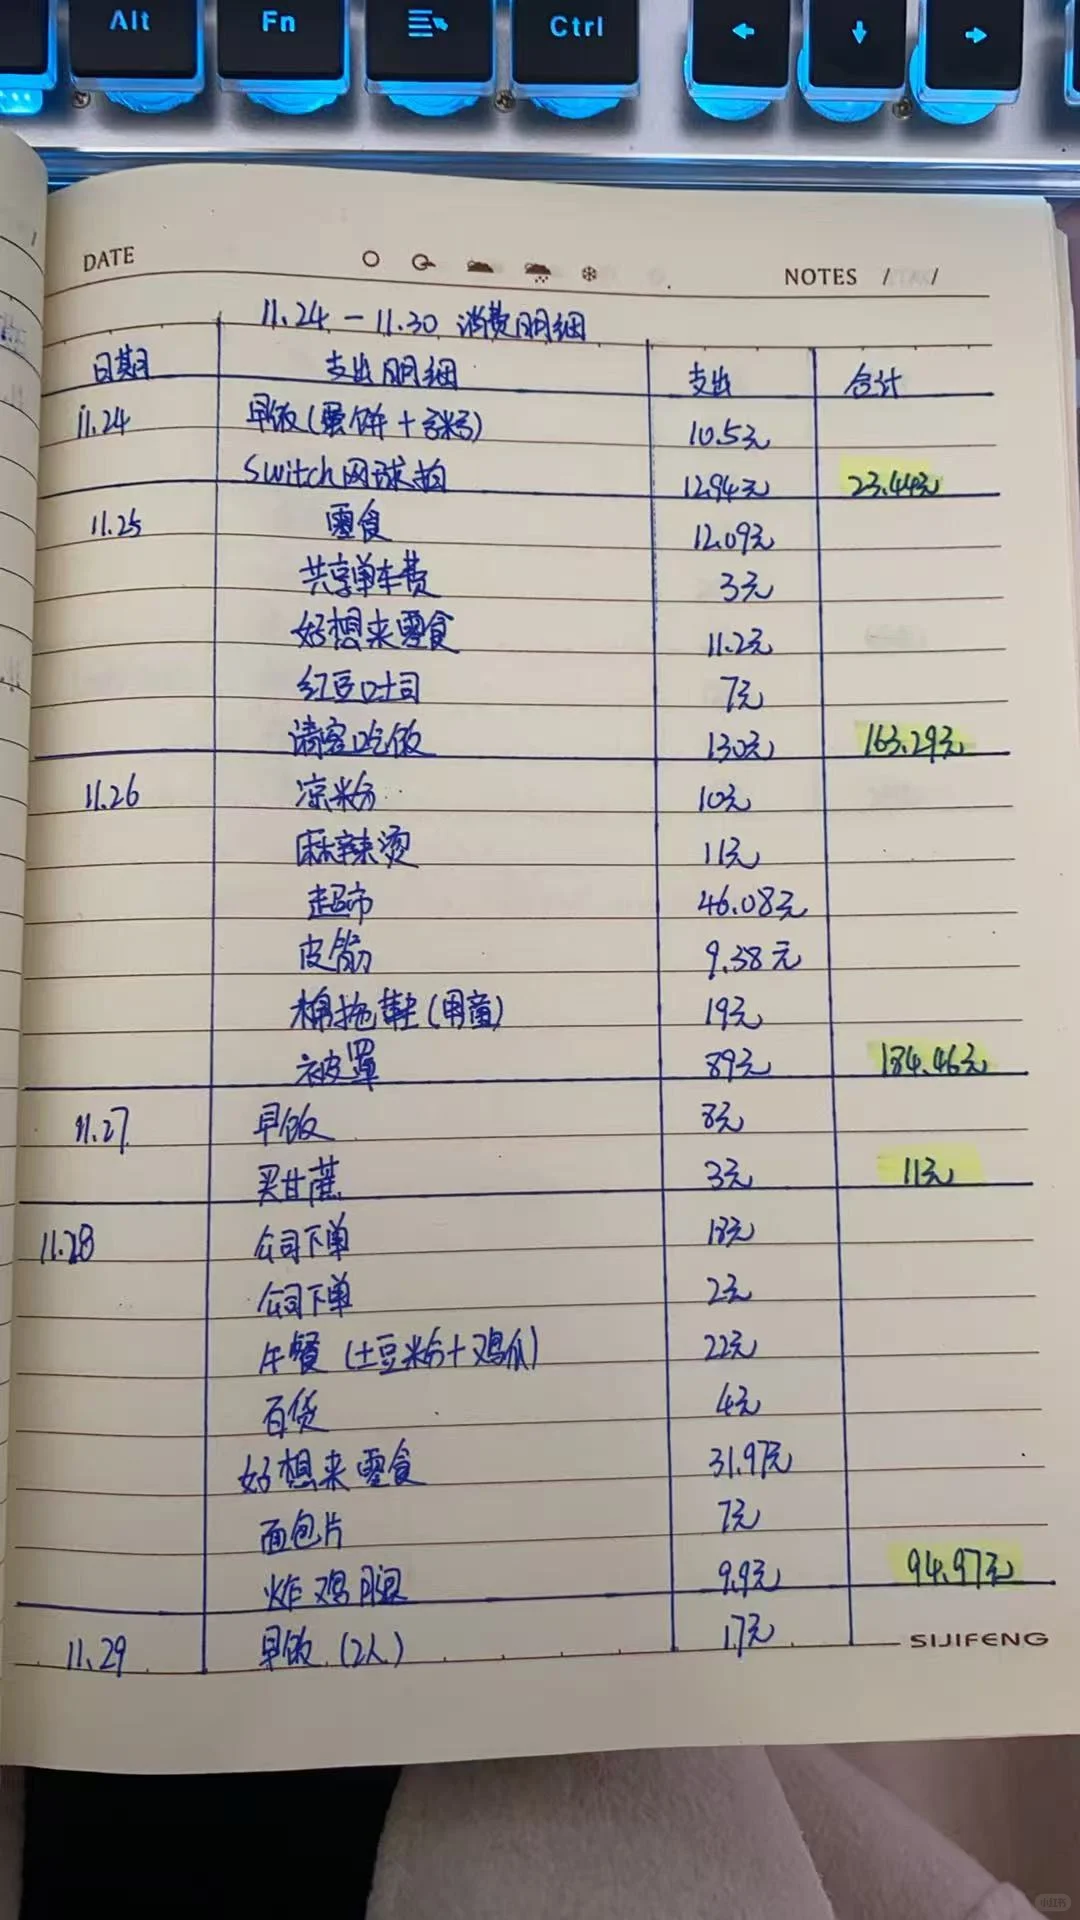 Alt Fn Ctrl
DATE NOTES / /
11.24 — 11.30 消费明细
日期 支出明细 支出 合计
11.24 早饭(蛋饼+米) 10.5元
Switch网球拍 12.94元 23.44元
11.25 零食 12.09元
共享单车费 3元
好想来零食 11.2元
红豆吐司 7元
请客吃饭 130元 163.29元
11.26 凉粉 10元
麻辣烫 11元
超市 46.08元
皮筋 9.38元
棉拖鞋() 19元
被罩 89元 184.46元
11.27 早饭 8元
买甘蔗 3元 11元
11.28 公司下单 18元
公司下单 2元
午餐(土豆粉+鸡爪) 22元
百货 4元
好想来零食 31.97元
面包片 7元
炸鸡腿 9.9元 94.97元
11.29 早饭(2人) 17元
SIJIFENG